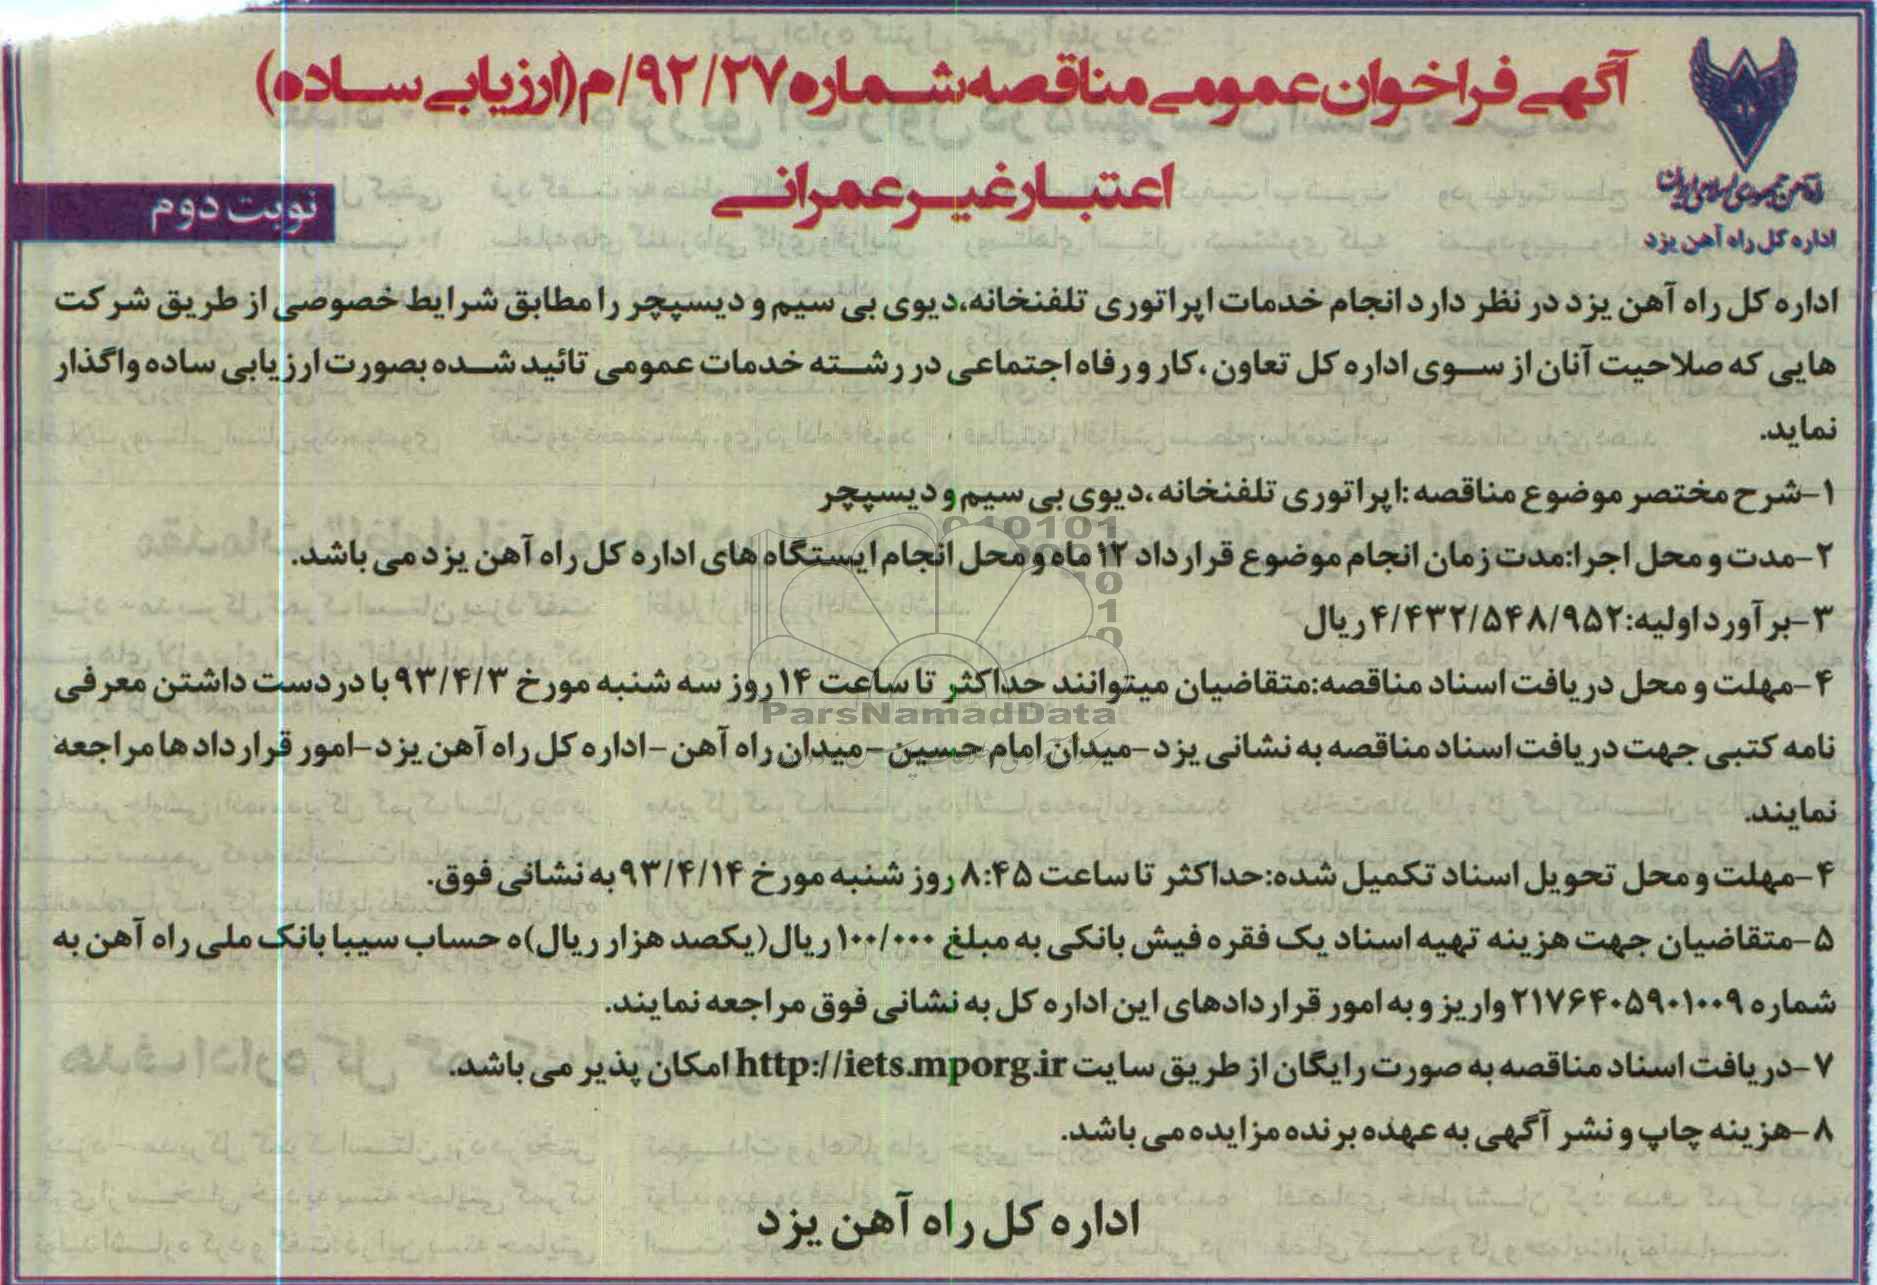 آگهی فراخوان عمومی مناقصه شماره ۹۲/۲۷/م(ارزیابی ساده)
اعتبار غیر عمرانی
راه آهن جمهوری اسلامی ایران
اداره کل راه آهن یزد
نوبت دوم
اداره کل راه آهن یزد در نظر دارد انجام خدمات اپراتوری تلفنخانه،دیوی بی سیم و دیسپچر را مطابق شرایط خصوصی از طریق شرکت
هایی که صلاحیت آنان از سوی اداره کل تعاون ،کار و رفاه اجتماعی در رشته خدمات عمومی تائید شده بصورت ارزیابی ساده واگذار
نماید.
۱-شرح مختصر موضوع مناقصه:اپراتوری تلفنخانه ،دیوی بی سیم و دیسپچر
۲-مدت و محل اجرا:مدت زمان انجام موضوع قرارداد ۱۲ ماه و محل انجام ایستگاه های اداره کل راه آهن یزد می باشد.
۳-برآورد اولیه:۴/۴۳۲/۵۴۸/۹۵۲ریال
۴-مهلت و محل دریافت اسناد مناقصه:متقاضیان میتوانند حداکثر تا ساعت ۱۴ روز سه شنبه مورخ ۹۳/۴/۳ با دردست داشتن معرفی
نامه کتبی جهت دریافت اسناد مناقصه به نشانی یزد-میدان امام حسین-میدان راه آهن-اداره کل راه آهن یزد-امور قراردادها مراجعه
نمایند.
۴-مهلت و محل تحویل اسناد تکمیل شده:حداکثر تا ساعت ۸:۴۵ روز شنبه مورخ ۹۳/۴/۱۴ به نشانی فوق.
۵-متقاضیان جهت هزینه تهیه اسناد یک فقره فیش بانکی به مبلغ ۱۰۰/۰۰۰ ریال(یکصد هزار ریال)ه حساب سیبا بانک ملی راه آهن به
شماره ۲۱۷۶۴۰۵۹۰۱۰۰۹ واریز و به امور قراردادهای این اداره کل به نشانی فوق مراجعه نمایند.
۷-دریافت اسناد مناقصه به صورت رایگان از طریق سایت http://iets.mporg.ir امکان پذیر می باشد.
۸-هزینه چاپ و نشر آگهی به عهده برنده مزایده می باشد.
اداره کل راه آهن یزد
ParsNamadData